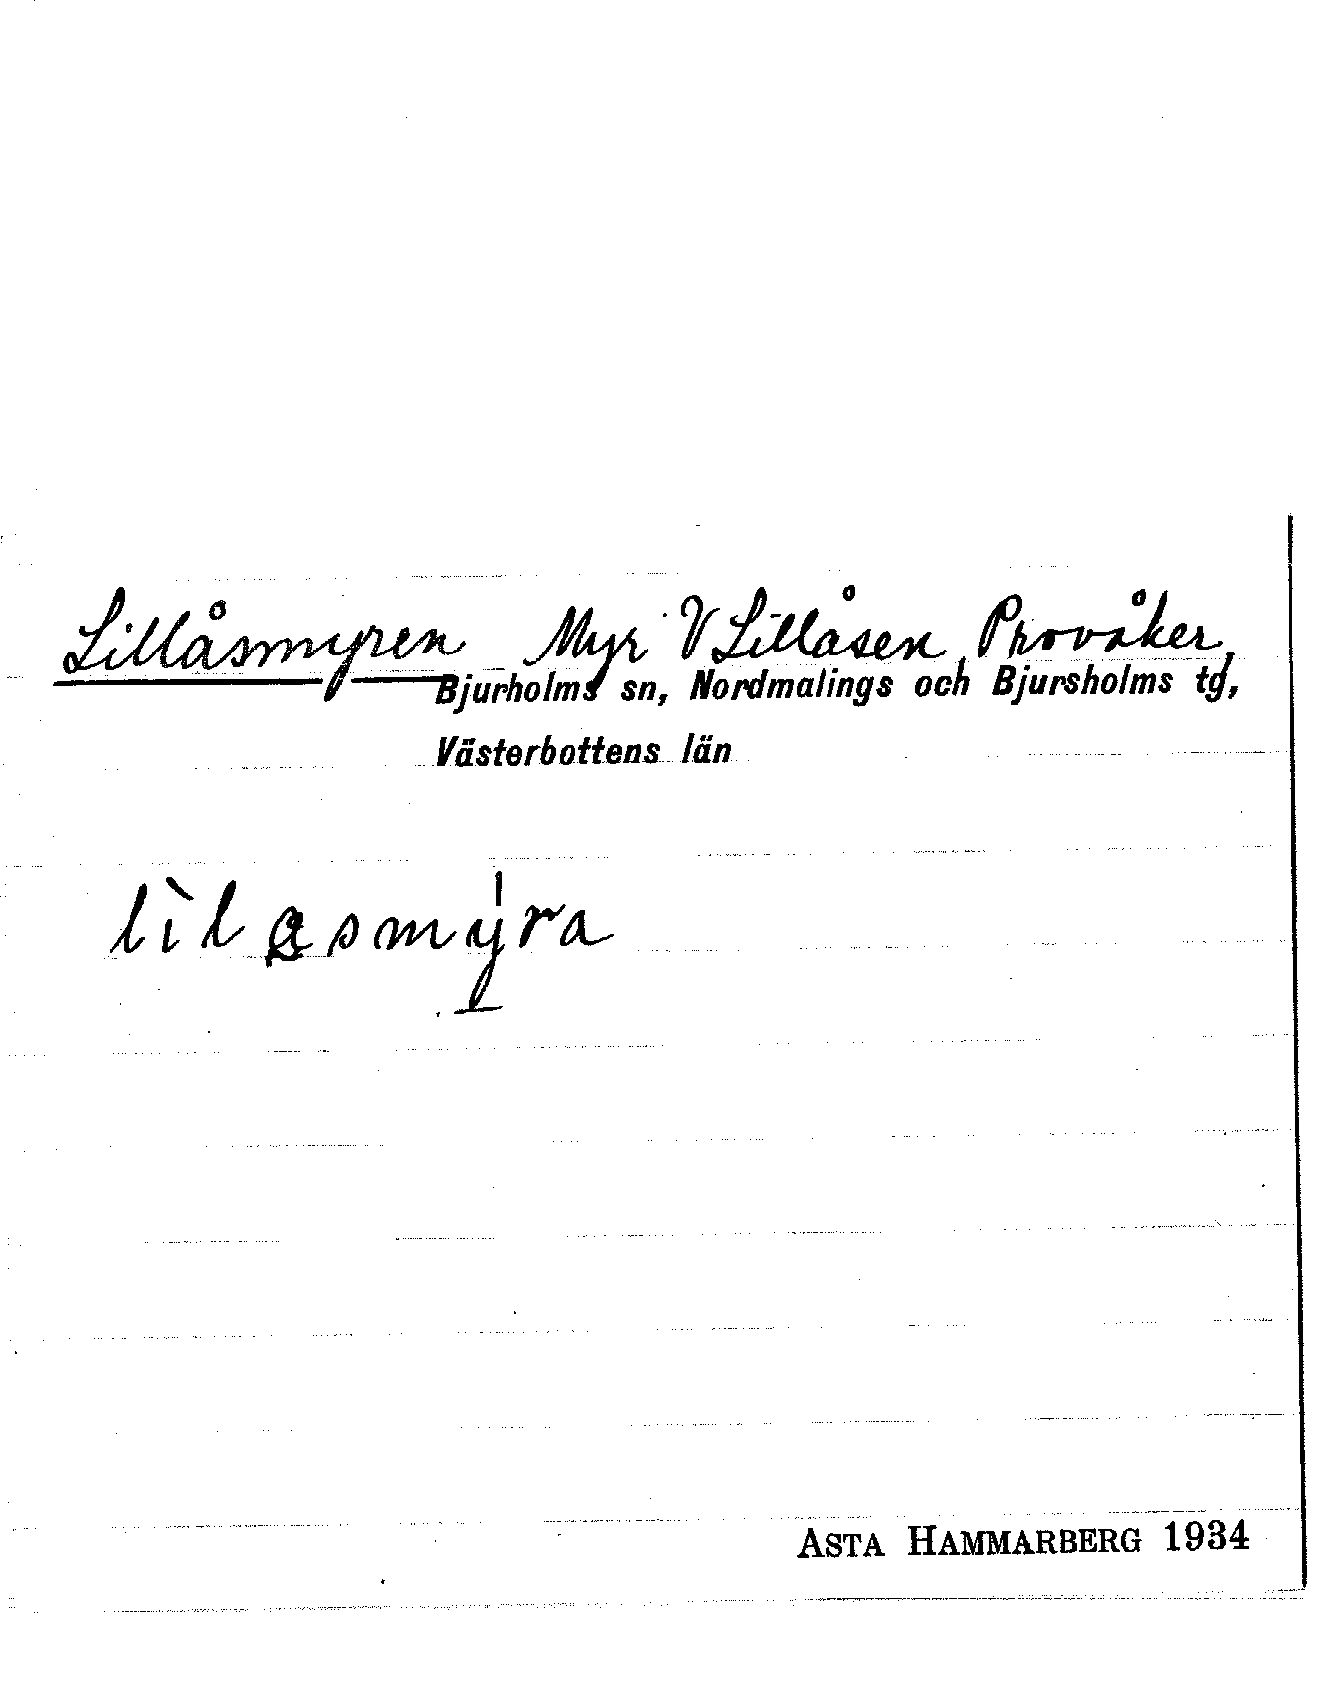 Lillåsmyren Myr V Lillåsen, Provåker,
Bjurholms sn, Nordmalings och Bjursholms tg,
Västerbottens län
ASTA HAMMARBERG 1934